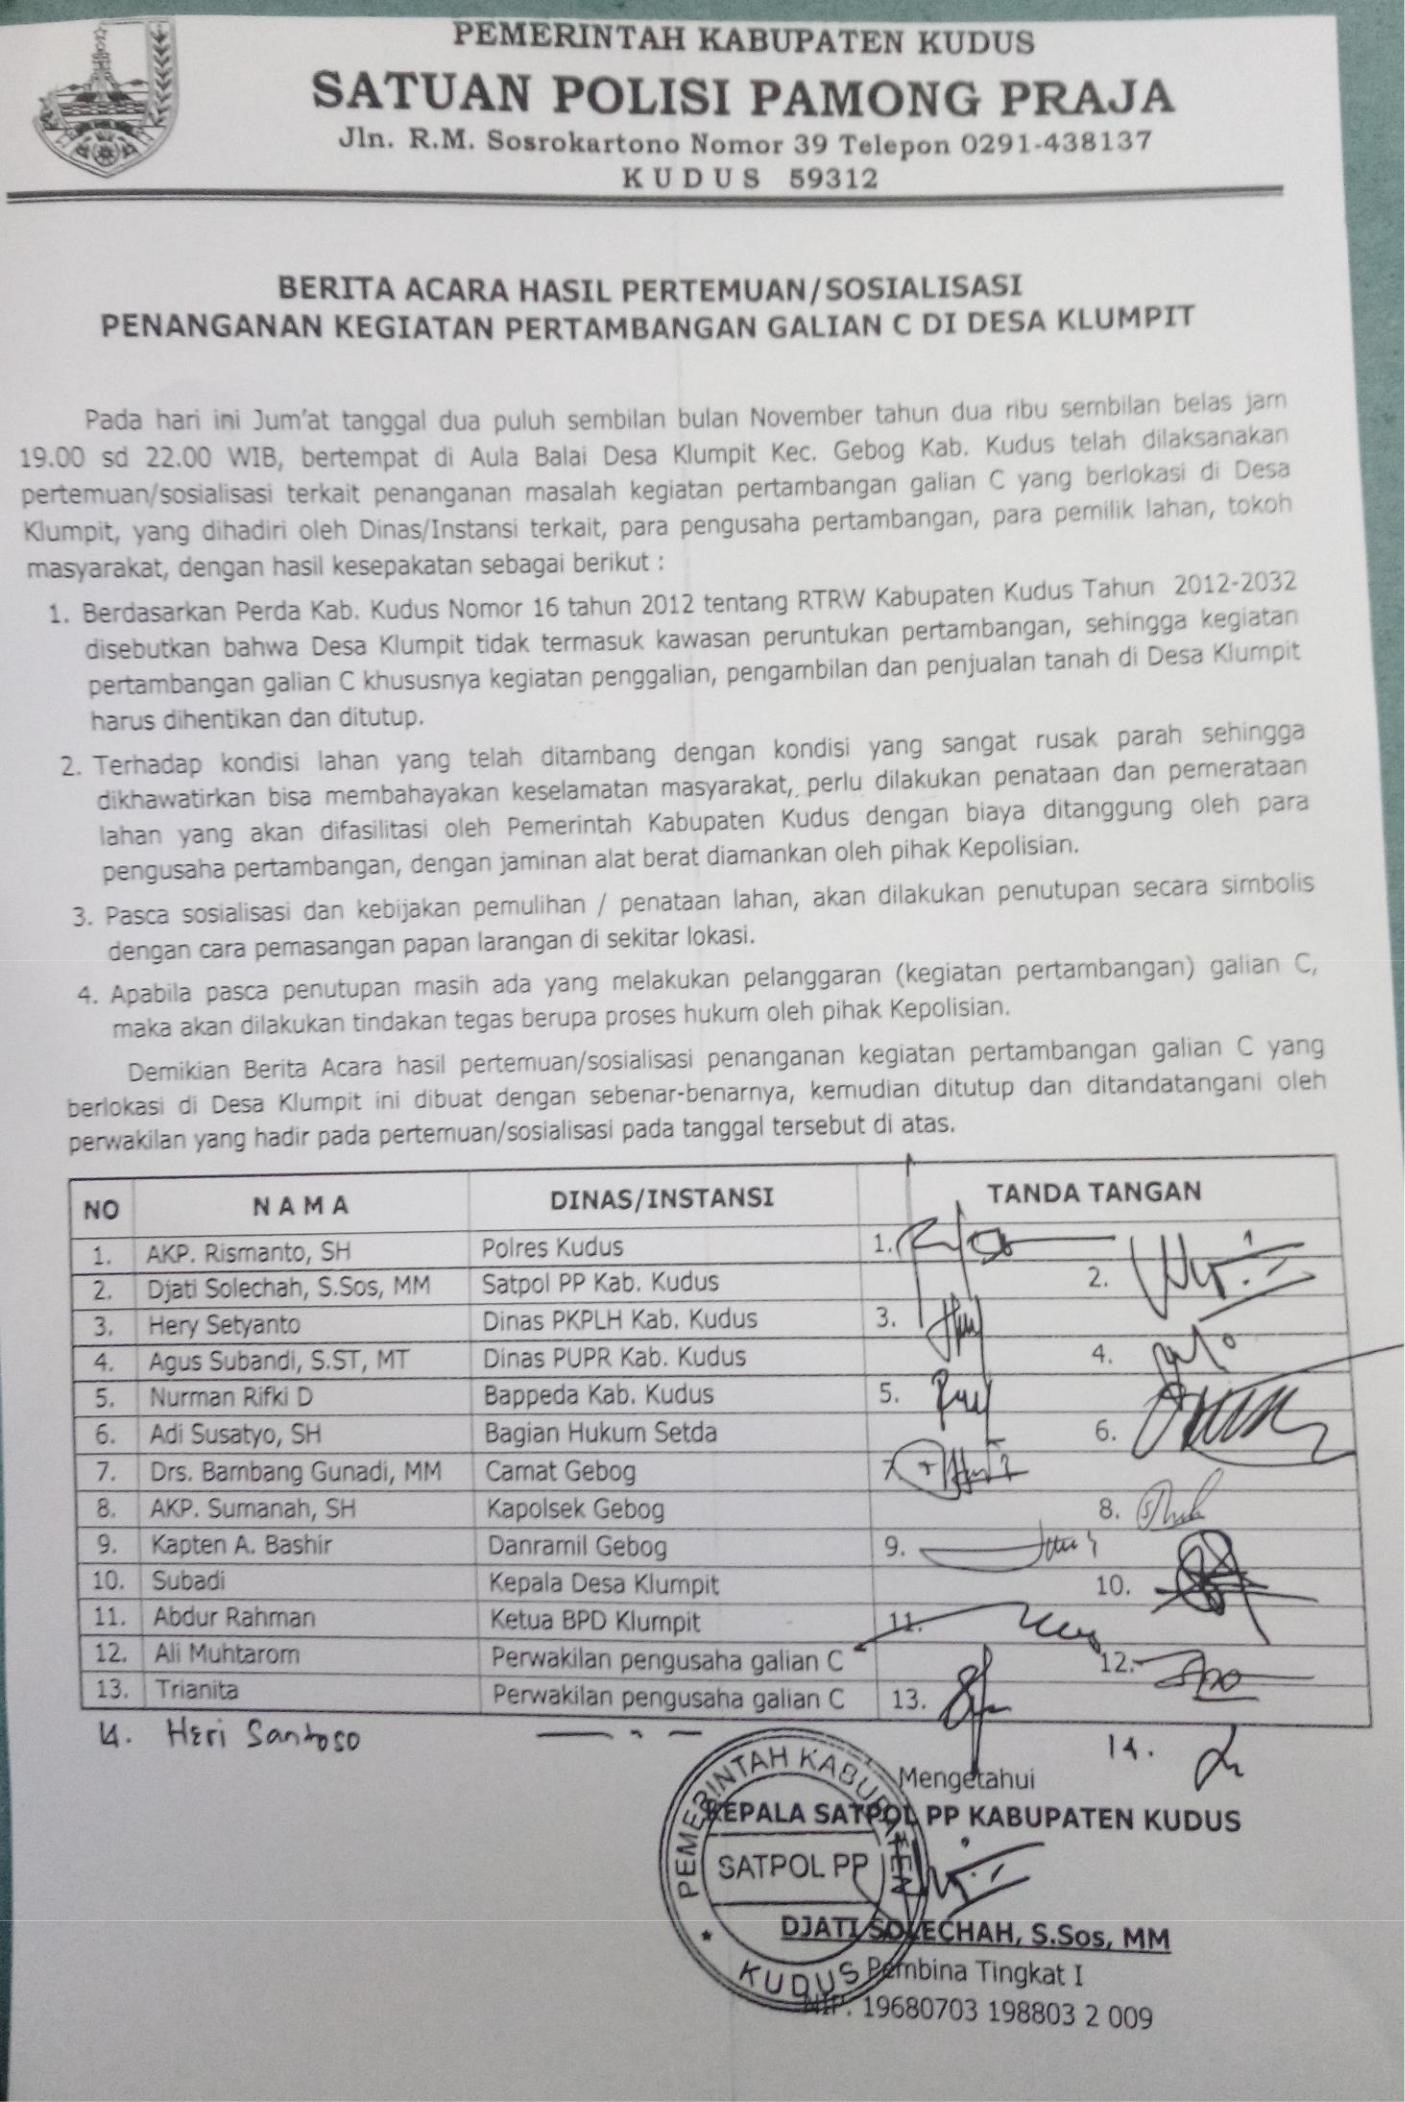 PEMERINTAH KABUPATEN KUDUS
SATUAN POLISI PAMONG PRAJA
Jln. R.M. Sosrokartono Nomor 39 Telepon 0291-438137
K U D U S 59312
BERITA ACARA HASIL PERTEMUAN/SOSIALISASI
PENANGANAN KEGIATAN PERTAMBANGAN GALIAN C DI DESA KLUMPIT
Pada hari ini Jum'at tanggal dua puluh sembilan bulan November tahun dua ribu sembilan belas jam
19.00 sd 22.00 WIB, bertempat di Aula Balai Desa Klumpit Kec. Gebog Kab. Kudus telah dilaksanakan
pertemuan/sosialisasi terkait penanganan masalah kegiatan pertambangan galian C yang berlokasi di Desa
Klumpit, yang dihadiri oleh Dinas/Instansi terkait, para pengusaha pertambangan, para pemilik lahan, tokoh
masyarakat, dengan hasil kesepakatan sebagai berikut :
1. Berdasarkan Perda Kab. Kudus Nomor 16 tahun 2012 tentang RTRW Kabupaten Kudus Tahun 2012-2032
disebutkan bahwa Desa Klumpit tidak termasuk kawasan peruntukan pertambangan, sehingga kegiatan
pertambangan galian C khususnya kegiatan penggalian, pengambilan dan penjualan tanah di Desa Klumpit
harus dihentikan dan ditutup.
2. Terhadap kondisi lahan yang telah ditambang dengan kondisi yang sangat rusak parah sehingga
dikhawatirkan bisa membahayakan keselamatan masyarakat, perlu dilakukan penataan dan pemerataan
lahan yang akan difasilitasi oleh Pemerintah Kabupaten Kudus dengan biaya ditanggung oleh para
pengusaha pertambangan, dengan jaminan alat berat diamankan oleh pihak Kepolisian.
3. Pasca sosialisasi dan kebijakan pemulihan / penataan lahan, akan dilakukan penutupan secara simbolis
dengan cara pemasangan papan larangan di sekitar lokasi.
4. Apabila pasca penutupan masih ada yang melakukan pelanggaran (kegiatan pertambangan) galian C,
maka akan dilakukan tindakan tegas berupa proses hukum oleh pihak Kepolisian.
Demikian Berita Acara hasil pertemuan/sosialisasi penanganan kegiatan pertambangan galian C yang
berlokasi di Desa Klumpit ini dibuat dengan sebenar-benarnya, kemudian ditutup dan ditandatangani oleh
perwakilan yang hadir pada pertemuan/sosialisasi pada tanggal tersebut di atas.
NO N A M A DINAS/INSTANSI TANDA TANGAN
1. AKP. Rismanto, SH Polres Kudus 1.
2. Djati Solechah, S.Sos, MM Satpol PP Kab. Kudus 2.
3. Hery Setyanto Dinas PKPLH Kab. Kudus 3.
4. Agus Subandi, S.ST, MT Dinas PUPR Kab. Kudus 4.
5. Nurman Rifki D Bappeda Kab. Kudus 5.
6. Adi Susatyo, SH Bagian Hukum Setda 6.
7. Drs. Bambang Gunadi, MM Camat Gebog 7.
8. AKP. Sumanah, SH Kapolsek Gebog 8.
9. Kapten A. Bashir Danramil Gebog 9.
10. Subadi Kepala Desa Klumpit 10.
11. Abdur Rahman Ketua BPD Klumpit 11.
12. Ali Muhtarom Perwakilan pengusaha galian C 12.
13. Trianita Perwakilan pengusaha galian C 13.
14. Heri Santoso — . — 14.
Mengetahui
KEPALA SATPOL PP KABUPATEN KUDUS
PEMERINTAH KABUPATEN
SATPOL PP
KUDUS
DJATI SOLECHAH, S.Sos, MM
Pembina Tingkat I
NIP. 19680703 198803 2 009